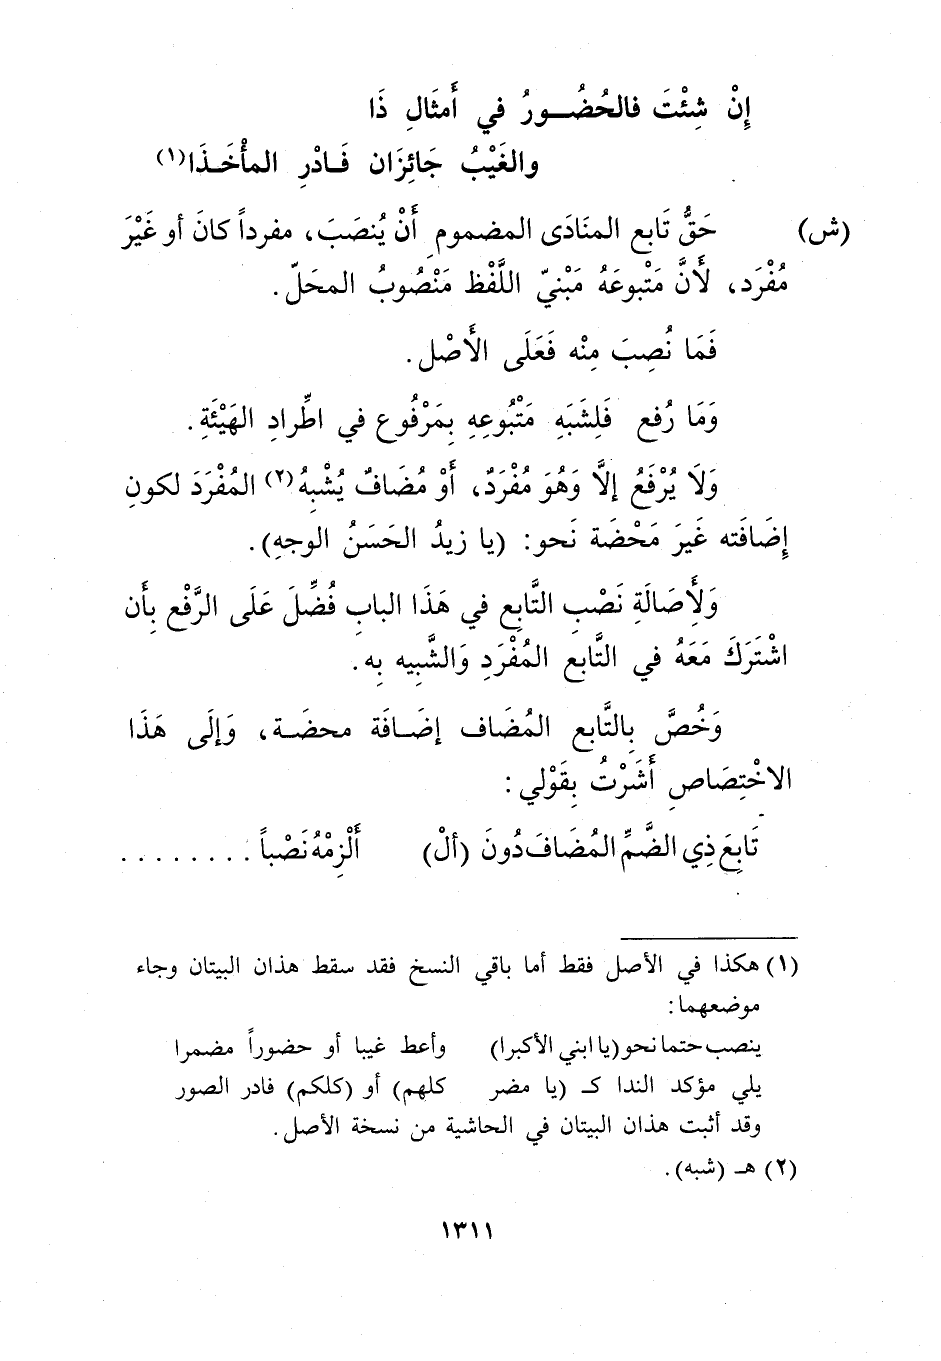 إِنْ شِئْتَ فالحُضُـــورُ في أَمثَالِ ذَا
والغَيْبُ جَائِزَان فَـادْرِ المأْخَـذَا(١)
(ش) حَقُّ تَابع المنَادَى المضموم أَنْ يُنصَبَ، مفرداً كانَ أو غَيْرَ
مُفْرَد، لأَنَّ مَتْبوعَهُ مَبْنيّ اللَّفْظ مَنْصُوبُ المحَلّ.
فَمَا نُصِبَ مِنْه فَعَلَى الأَصْل.
وَمَا رُفع فَلِشَبَهِ مَتْبُوعِهِ بِمَرْفُوع في اطِّرادِ الهَيْئَةِ.
وَلَا يُرْفَعُ إلَّا وَهُوَ مُفْرَدٌ، أَوْ مُضَافٌ يُشْبِهُ(٢) المُفْرَدَ لكونِ
إِضَافَته غَيرَ مَحْضَة نَحو: (يا زيدُ الحَسَنُ الوجهِ).
وَلأِصَالَةِ نَصْبِ التَّابِع في هَذَا البابِ فُضِّلَ عَلَى الرَّفْع بِأَن
اشْتَرَكَ مَعَهُ في التَّابع المُفْرَدِ وَالشَّبِيه بِه.
وَخُصَّ بِالتَّابع المُضَاف إضَـافَة محضَـة، وَإلَى هَذَا
الاخْتِصَاصِ أَشَرْتُ بِقَوْلي:
تَابِعَ ذِي الضَّمِّ المُضَافَ دُونَ (ألْ) أَلْزِمْهُ نَصْباً ........
(١) هكذا في الأصل فقط أما باقي النسخ فقد سقط هذان البيتان وجاء
موضعهما:
ينصب حتما نحو (يا ابني الأكبرا) وأعط غيبا أو حضوراً مضمرا
يلي مؤكد الندا كـ (يا مضر كلهم) أو (كلكم) فادر الصور
وقد أثبت هذان البيتان في الحاشية من نسخة الأصل.
(٢) هـ (شبه).
١٣١١